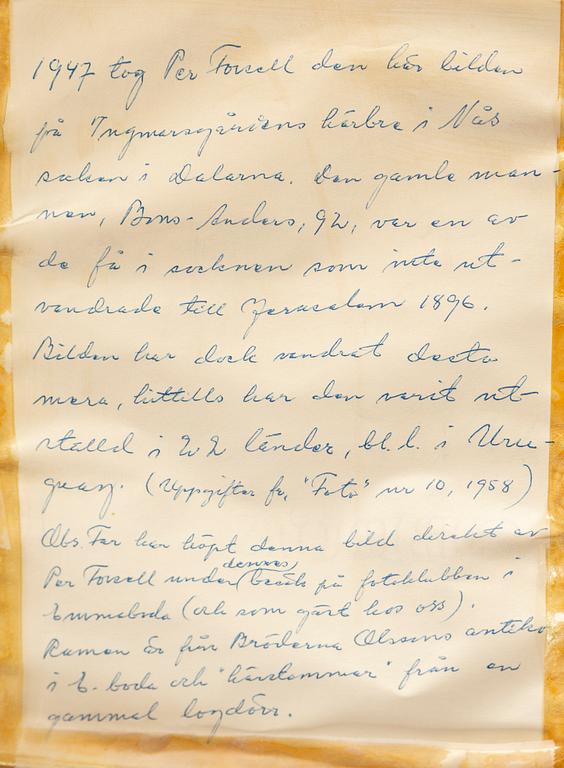 1947 tog Per Forsell den här bilden
på Ingmarsgårdens härbre i Nås
socken i Dalarna. Den gamle man-
nen, Bons-Anders, 92, var en av
de få i socknen som inte ut-
vandrade till Jerusalem 1896.
Bilden har dock vandrat desto
mera, hittills har den varit ut-
ställd i 22 länder, bl. l. i Uru-
guay. (Uppgifter fr. "Foto" nr 10, 1958)
Obs. Far har köpt denna bild direkt av
Per Forsell under dennes besök på fotoklubben i
Emmaboda (och som gäst hos oss).
Ramen är från Bröderna Olssons antikv
i E. boda och "härstammar" från en
gammal logdörr.